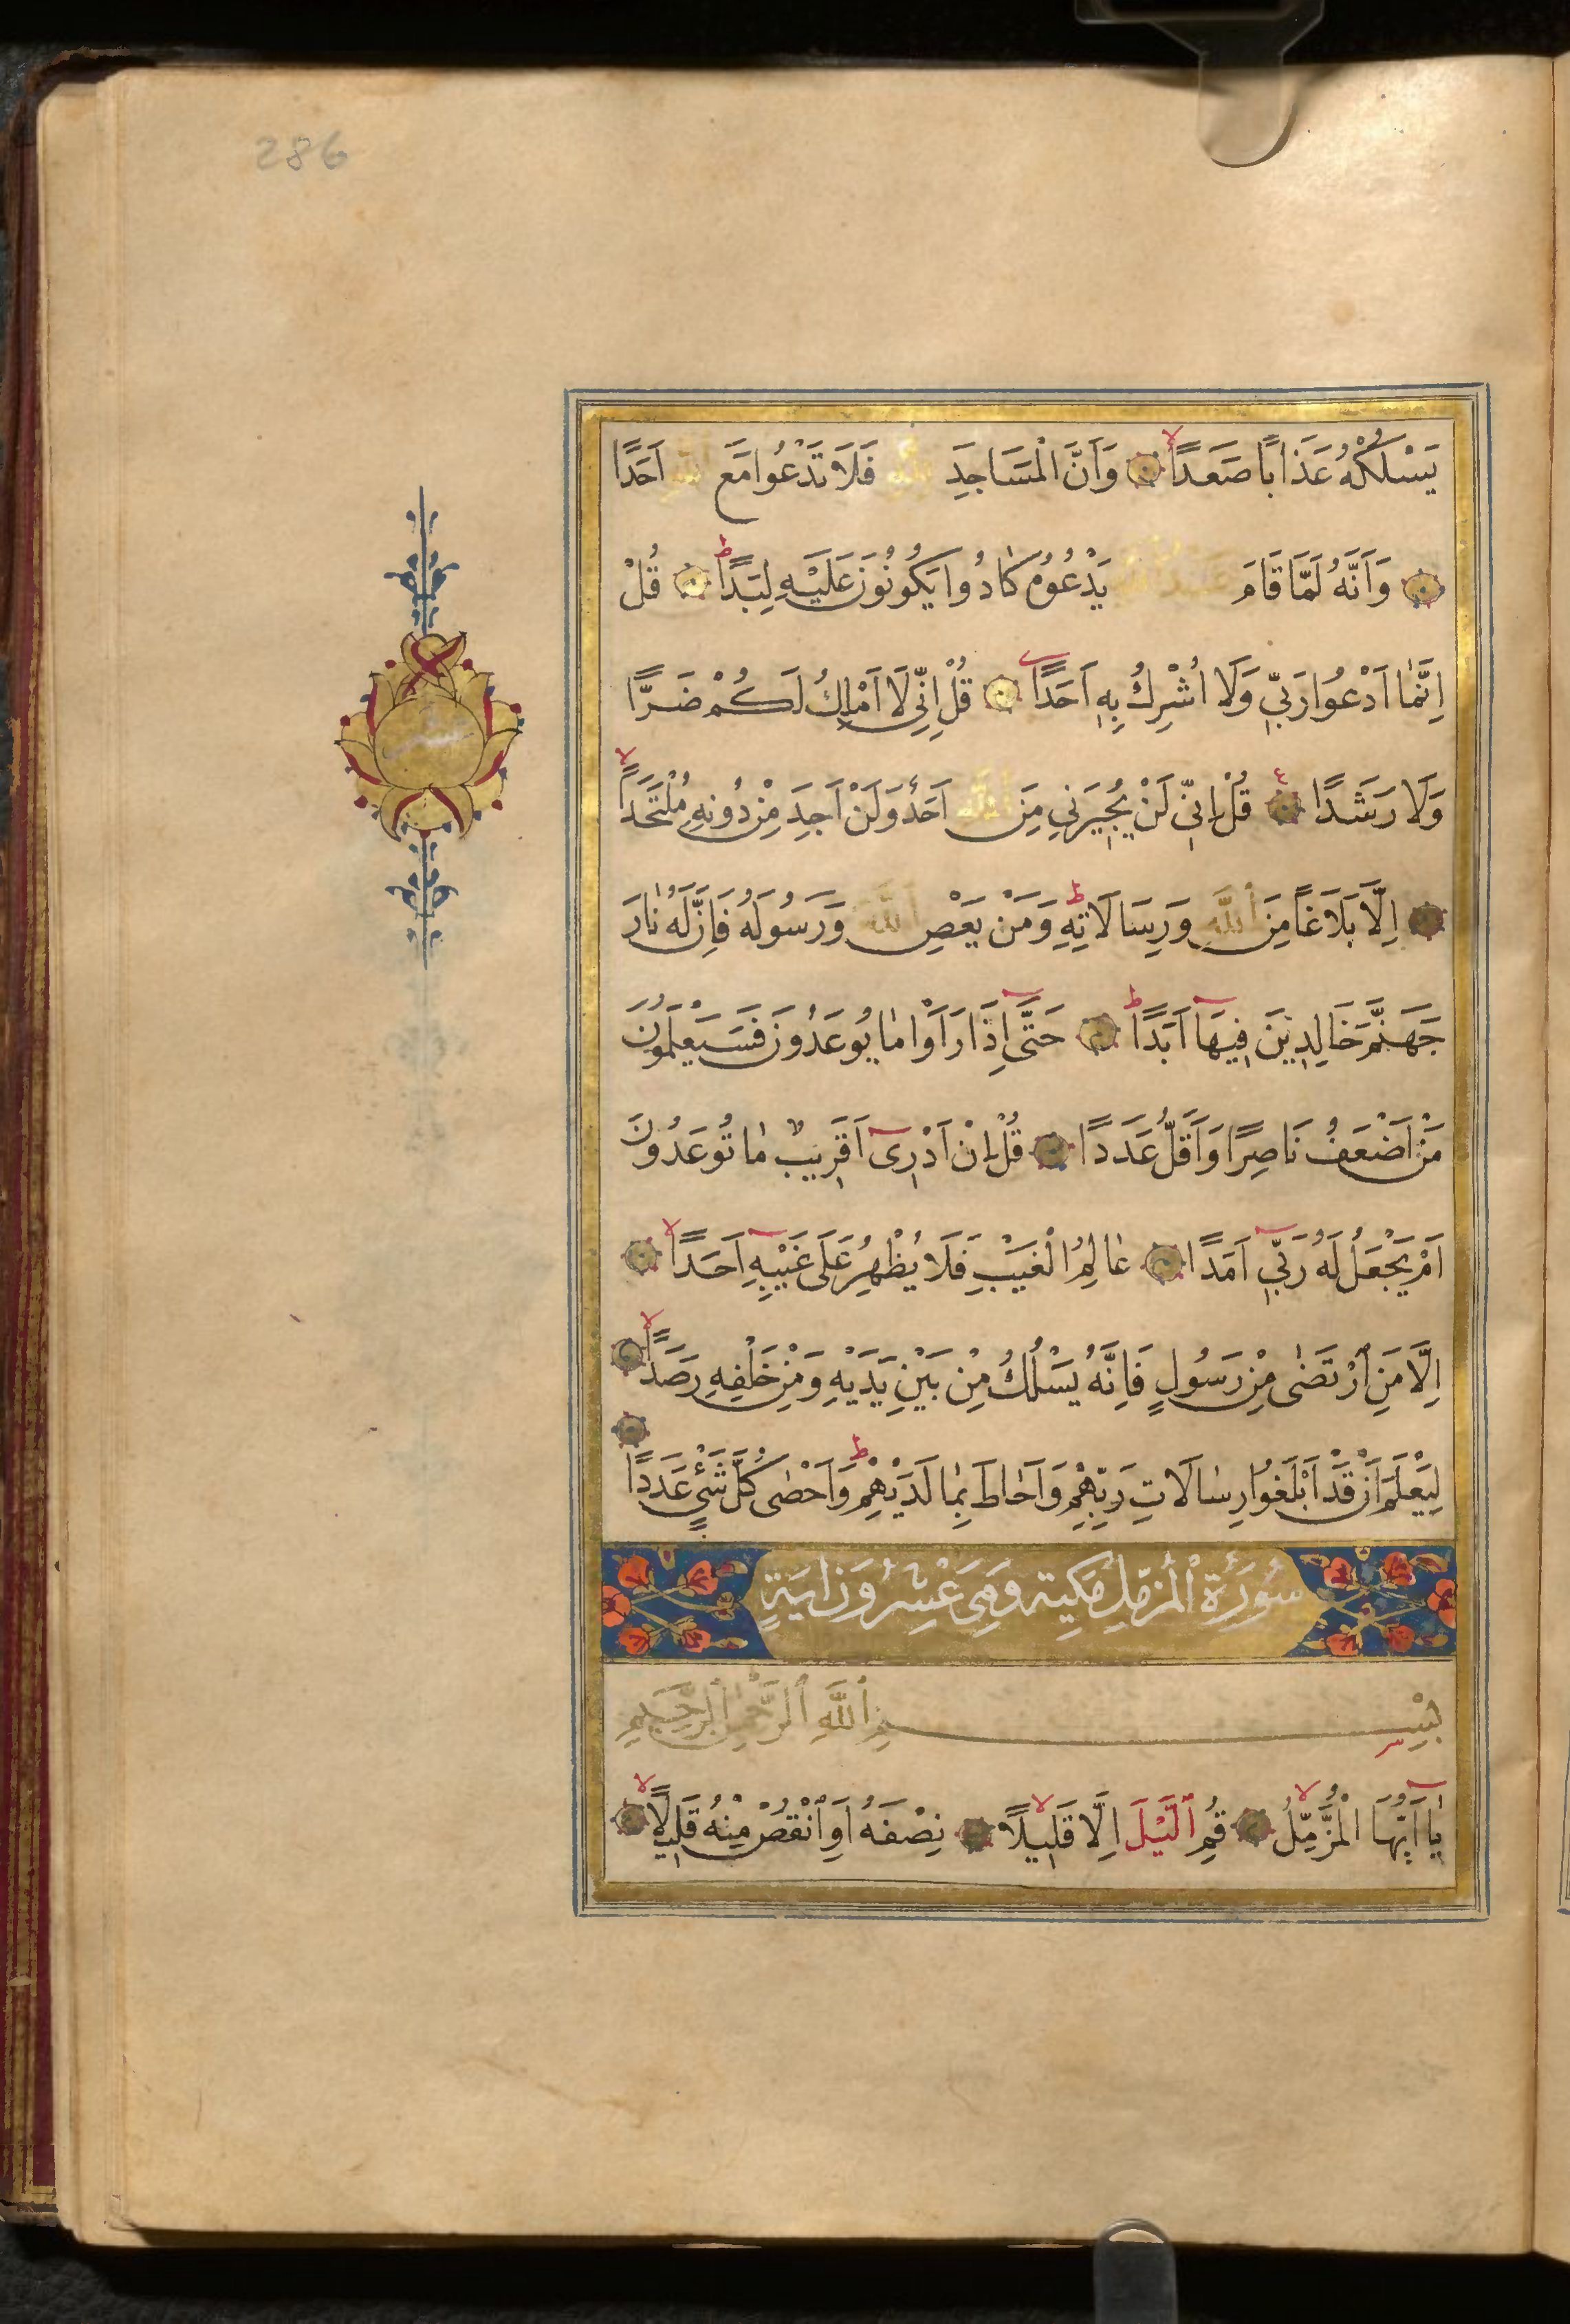 286
يَسْلُكْهُ عَذَابًا صَعَدًا وَاَنَّ الْمَسَاجِدَ لِلّٰهِ فَلَا تَدْعُوا مَعَ اللّٰهِ اَحَدًا
وَاَنَّهُ لَمَّا قَامَ عَبْدُ اللّٰهِ يَدْعُوهُ كَادُوا يَكُونُونَ عَلَيْهِ لِبَدًا قُلْ
اِنَّمَا اَدْعُوا رَبِّي وَلَا اُشْرِكُ بِهِ اَحَدًا قُلْ اِنِّي لَا اَمْلِكُ لَكُمْ ضَرًّا
وَلَا رَشَدًا قُلْ اِنِّي لَنْ يُجِيرَنِي مِنَ اللّٰهِ اَحَدٌ وَلَنْ اَجِدَ مِنْ دُونِهِ مُلْتَحَدًا
اِلَّا بَلَاغًا مِنَ اللّٰهِ وَرِسَالَاتِهِ وَمَنْ يَعْصِ اللّٰهَ وَرَسُولَهُ فَاِنَّ لَهُ نَارَ
جَهَنَّمَ خَالِدِينَ فِيهَا اَبَدًا حَتَّى اِذَا رَاَوْا مَا يُوعَدُونَ فَسَيَعْلَمُونَ
مَنْ اَضْعَفُ نَاصِرًا وَاَقَلُّ عَدَدًا قُلْ اِنْ اَدْرِى اَقَرِيبٌ مَا تُوعَدُونَ
اَمْ يَجْعَلُ لَهُ رَبِّي اَمَدًا عَالِمُ الْغَيْبِ فَلَا يُظْهِرُ عَلَى غَيْبِهِ اَحَدًا
اِلَّا مَنِ ارْتَضَى مِنْ رَسُولٍ فَاِنَّهُ يَسْلُكُ مِنْ بَيْنِ يَدَيْهِ وَمِنْ خَلْفِهِ رَصَدًا
لِيَعْلَمَ اَنْ قَدْ اَبْلَغُوا رِسَالَاتِ رَبِّهِمْ وَاَحَاطَ بِمَا لَدَيْهِمْ وَاَحْصَى كُلَّ شَيْءٍ عَدَدًا
سُورَةُ الْمُزَّمِّلِ مَكِيَّة وَهِيَ عِشْرُونَ اٰيَةٍ
بِسْمِ اللّٰهِ الرَّحْمٰنِ الرَّحِيمِ
يَا اَيُّهَا الْمُزَّمِّلُ قُمِ الَّيْلَ اِلَّا قَلِيلًا نِصْفَهُ اَوِ انْقُصْ مِنْهُ قَلِيلًا